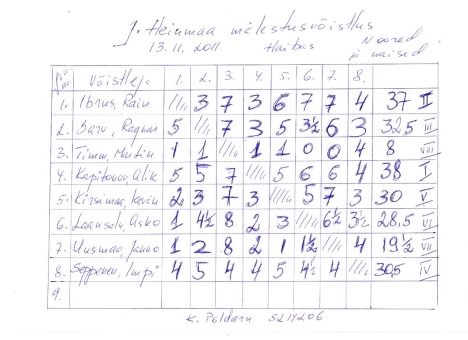 J. Heinmaa mälestusvõistlus
13.11.2011. Haibas Noored
ja naised
Jrk. nr. Võistleja 1. 2. 3. 4. 5. 6. 7. 8.
1. Ibrus, Rain //// 3 7 3 6 7 7 4 37 II
2. Saru, Ragnar 5 //// 7 3 5 3½ 6 3 32,5 III
3. Timm, Martin 1 1 //// 1 1 0 0 4 8 VIII
4. Kapitonov, Alik 5 5 7 //// 5 6 6 4 38 I
5. Kirsimaa, Kevin 2 3 7 3 //// 5 7 3 30 V
6. Laansalu, Asko 1 4½ 8 2 3 //// 6½ 3½ 28,5 VI
7. Uusmaa, Janno 1 2 8 2 1 1½ //// 4 19½ VII
8. Seppenen, Impi 4 5 4 4 5 4½ 4 //// 30,5 IV
9.
K. Põldaru 5211206